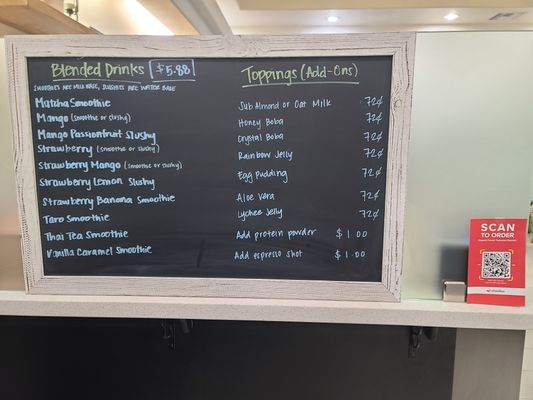 Blended Drinks $5.88
SMOOTHIES ARE MILK BASE, SLUSHIES ARE WATER BASE
Matcha Smoothie
Mango (smoothie or slushy)
Mango Passionfruit Slushy
Strawberry (smoothie or slushy)
Strawberry Mango (smoothie or slushy)
Strawberry Lemon Slushy
Strawberry Banana Smoothie
Taro Smoothie
Thai Tea Smoothie
Vanilla Caramel Smoothie
Toppings (Add-Ons)
Sub Almond or Oat Milk .72¢
Honey Boba 72¢
Crystal Boba 72¢
Rainbow Jelly 72¢
Egg Pudding 72¢
Aloe Vera 72¢
Lychee Jelly 72¢
Add protein powder $1.00
Add espresso shot $1.00
SCAN
TO ORDER